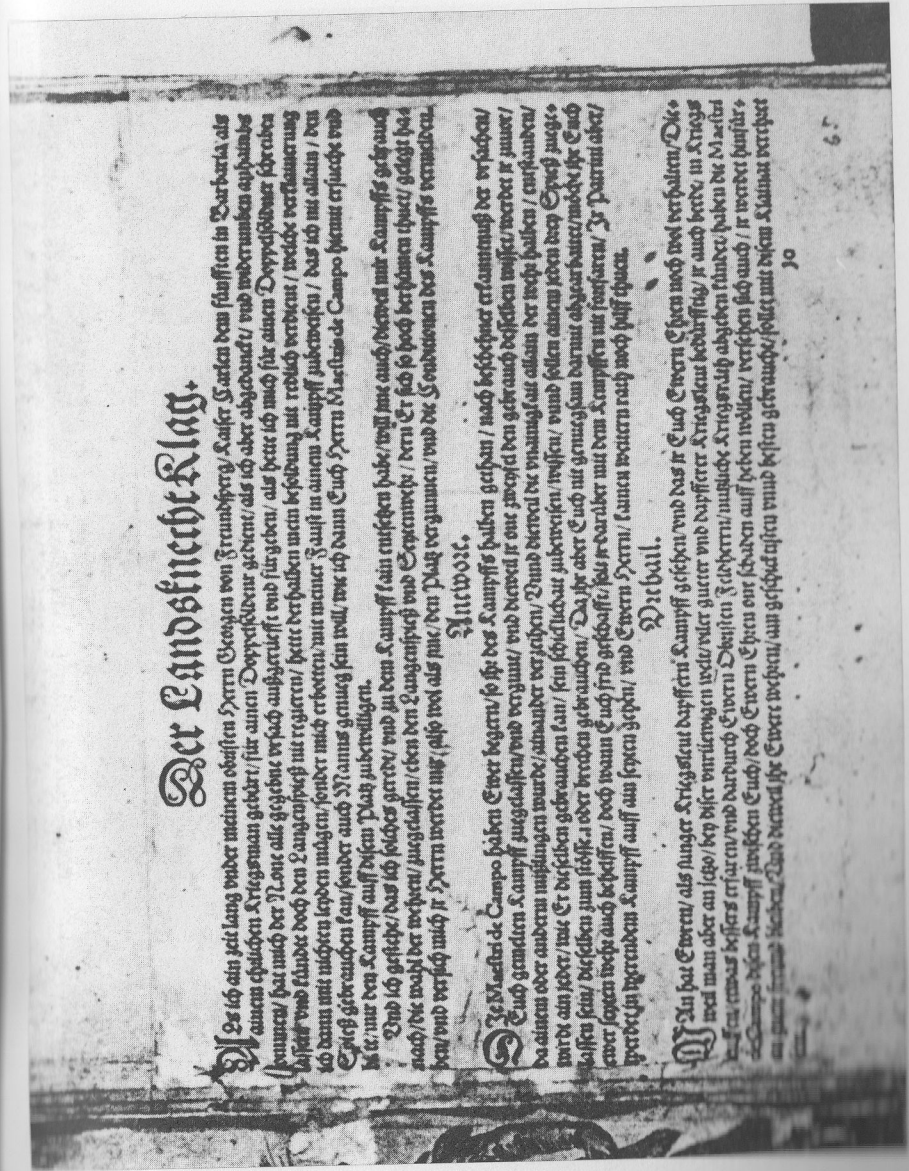 Der Landsknecht Klag.
Als ich ain zeit lang vnder meinem obristen Herrn Georgen von Freundsperg/ Kaiser Carlen dem fünfften in Barbaria/ als
ainem ehrlichen Kriegsman gebürt/ für ainen Doppelsöldner gedient/ als ich aber abgedanckt/ vnd widerumben anhaimbs
kommen/ hat mich der None alle gegebne vrsach außgerüefft vnd fürgeben/ als hete ich mich für ainen Doppelsöldner schreiben
lassen/ vnd künde doch den Langenspieß nit regieren/ hete derhalben mein besoldung nit redlich verdient/ welche verklainerung
ich dann mit nichten leyden mügen/ sonder mich erboten/ mit meiner Faust in ainem Kampff zubeweisen/ das ich nit allain/ den
Spieß gebrauchen kan/ sonder auch Manns genueg sein will/ wie ich dann Euch Herrn Maestri de Campo hiemit ersueche vnd
bitte/ mir den Kampff auff disem Platz zubewilligen.
Und ich gestehe/ das ich solches geredt/ vnd zu dem Kampff kain entsetzen habe/ will jme auch/ dieweil mir Kampffs gebrauch
nach/ die wahl der wehren/ zuegelassen/ eben den Langenspieß vnd Seytenwehr/ dern Er sich so hoch berhümen thuet/ gelegt ha=
ben/ vnd versich mich jr Herrn werdet mir/ also wol als jme/ den Platz vergunnen/ vnd die Conditionen des Kampffs vermelden.
Antwort.
Die Maestri de Campo haben Ewer begern/ so jhr des Kampffs halben gethan/ nach beschehner erkanntnuß der vrsachen/
Euch gemelten Kampff zuegelassen/ vnd vergunt/ vnd dieweil jr one zweyfel den gebrauch desselben wisset/ werdet jr zuuor/
da ainem oder anderm mißlingen wurde/ ainander verzeihen/ Vnnd dieweil die vnainigkait allain der wehr halben/ entstanden/
wirdt ain jeder/ wie Er dieselben gebrauchen kan/ sein schicklichait zubeweisen/ wissen/ vnnd sollen ainem jeden drey Spieß zuege=
lassen sein/ dieselben zum schiessen oder brechen gebrauchen/ Da jhr aber Euch nit genuegsam darmit abgearbaitet/ möcht jhr Euch
ewer seyten wehr auch behelffen/ doch wann Euch frid geschafft/ solt jr darüber mit dem Kampffen nit fortfaren/ Jr Patrini aber/
werdet in werendem Kampff auff ain seyten gehn/ vnd Ewern Herrn/ kainen weitern rath noch hilff thuen.
Vrthail.
Man hat Ewern/ als junger Kriegsleut dapffern Kampff gesehen/ vnd das jr Euch Ewern Ehren nach wol verhalten/ Die=
weil man aber an jetzo/ bey diser vnrüewigen welt/ viler gueter vnd dapfferer Kriegsleut bedürfftig/ jr auch beede/ in Kriegs
leuffen/ etwas bessers erfaren/ vnd dardurch Ewern Obristen Feldherrn/ nutzliche Kriegsleut abgeben kündet/ haben die Maestri
de Campo disen Kampff zwischen Euch/ doch Ewern Ehren one schaden auff heben wöllen/ versehen sich auch/ jr werdet hinfür=
an guete freund bleiben/ Vnd dieweil jhr Ewere wehren/ am geschicktisten vnnd besten gebraucht/ sollet mit disem Klainat verehret
J0
65